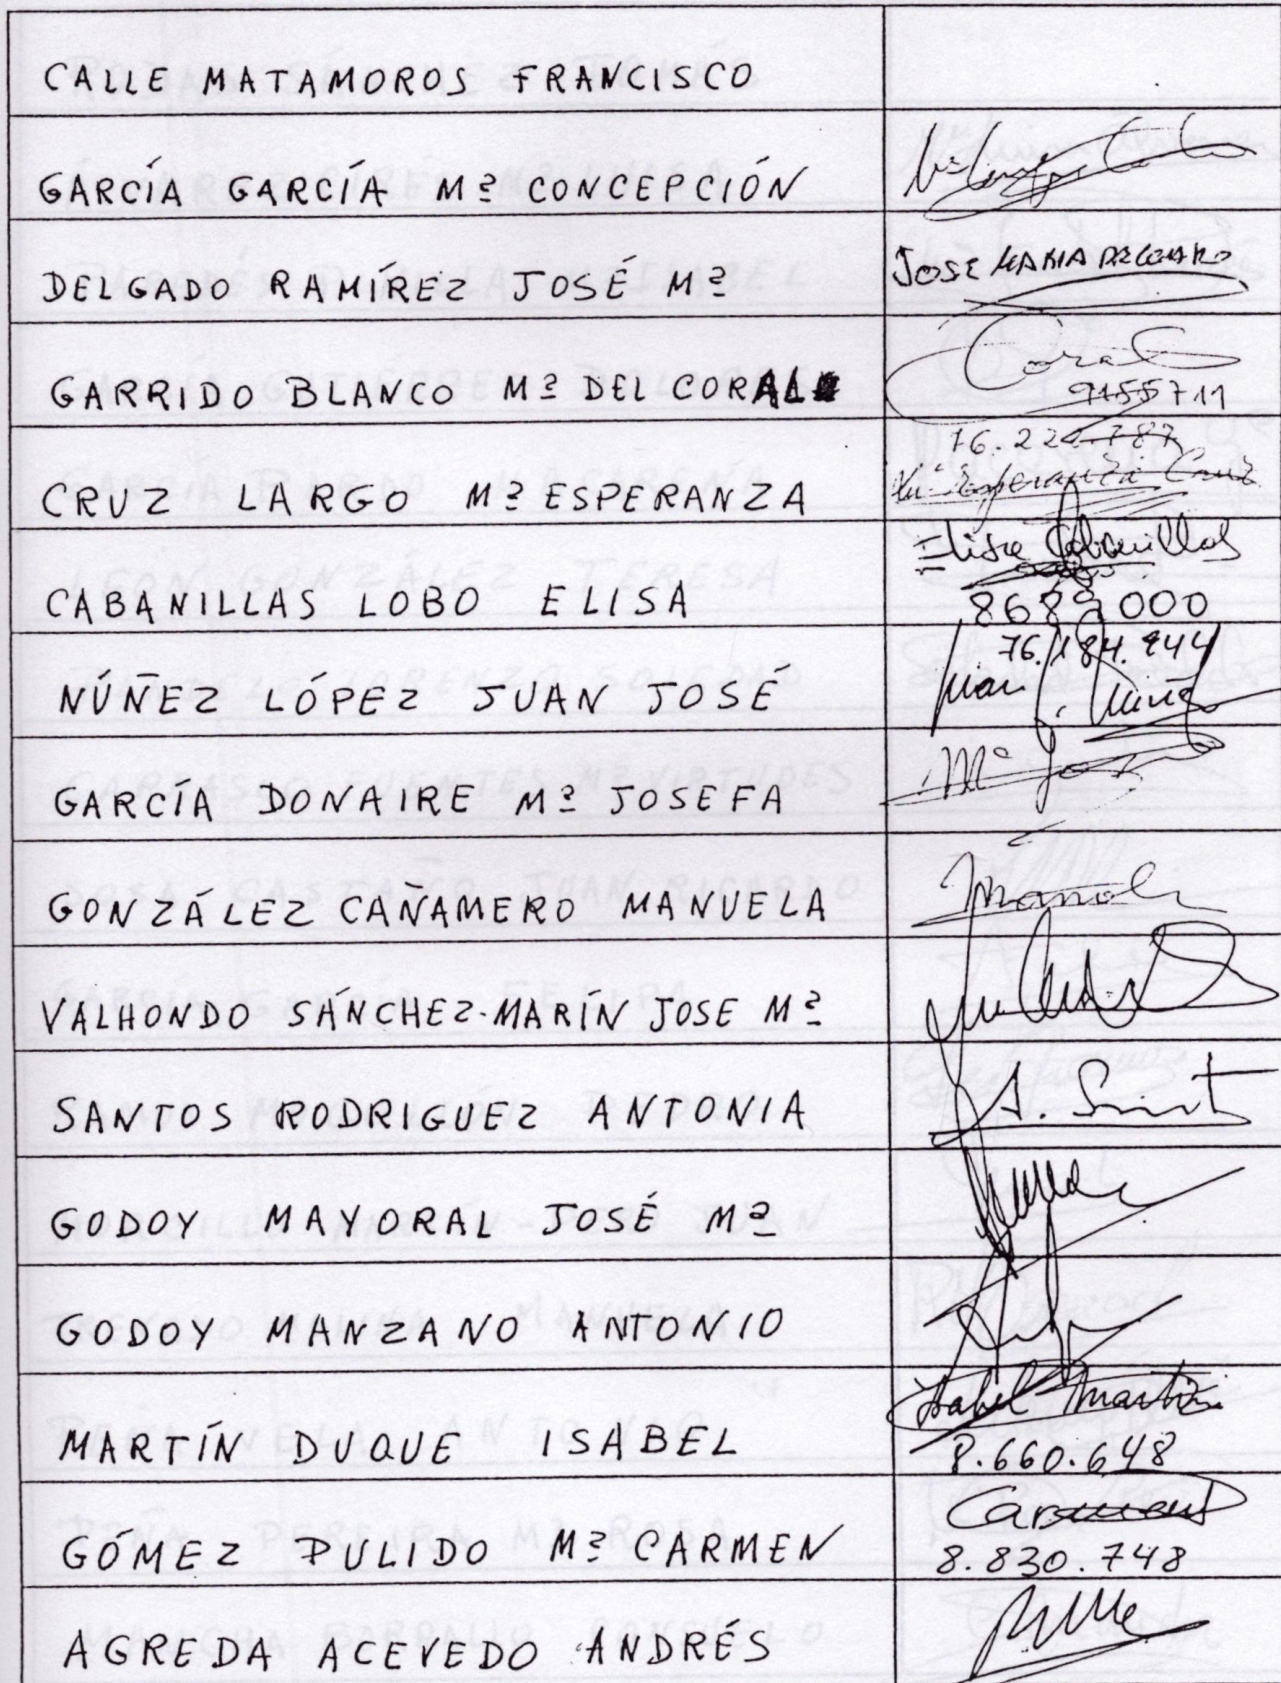 CALLE MATAMOROS FRANCISCO
GARCÍA GARCÍA Mª CONCEPCIÓN
DELGADO RAMÍREZ JOSÉ Mª
JOSE MARIA DELGADO
GARRIDO BLANCO Mª DEL CORAL
Coral
9155711
CRUZ LARGO Mª ESPERANZA
76.224.787
Mª Esperanza Cruz
CABANILLAS LOBO ELISA
Elisa Cabanillas
8689000
NÚÑEZ LÓPEZ JUAN JOSÉ
76.184.944
Juan J. Núñez
GARCÍA DONAIRE Mª JOSEFA
Mª Josefa
GONZÁLEZ CAÑAMERO MANUELA
Manoli
VALHONDO SÁNCHEZ-MARÍN JOSE Mª
SANTOS RODRIGUEZ ANTONIA
A. Sant
GODOY MAYORAL JOSÉ Mª
GODOY MANZANO ANTONIO
MARTÍN DUQUE ISABEL
Isabel Martín
8.660.648
GÓMEZ PULIDO Mª CARMEN
Carmen
8.830.748
AGREDA ACEVEDO ANDRÉS